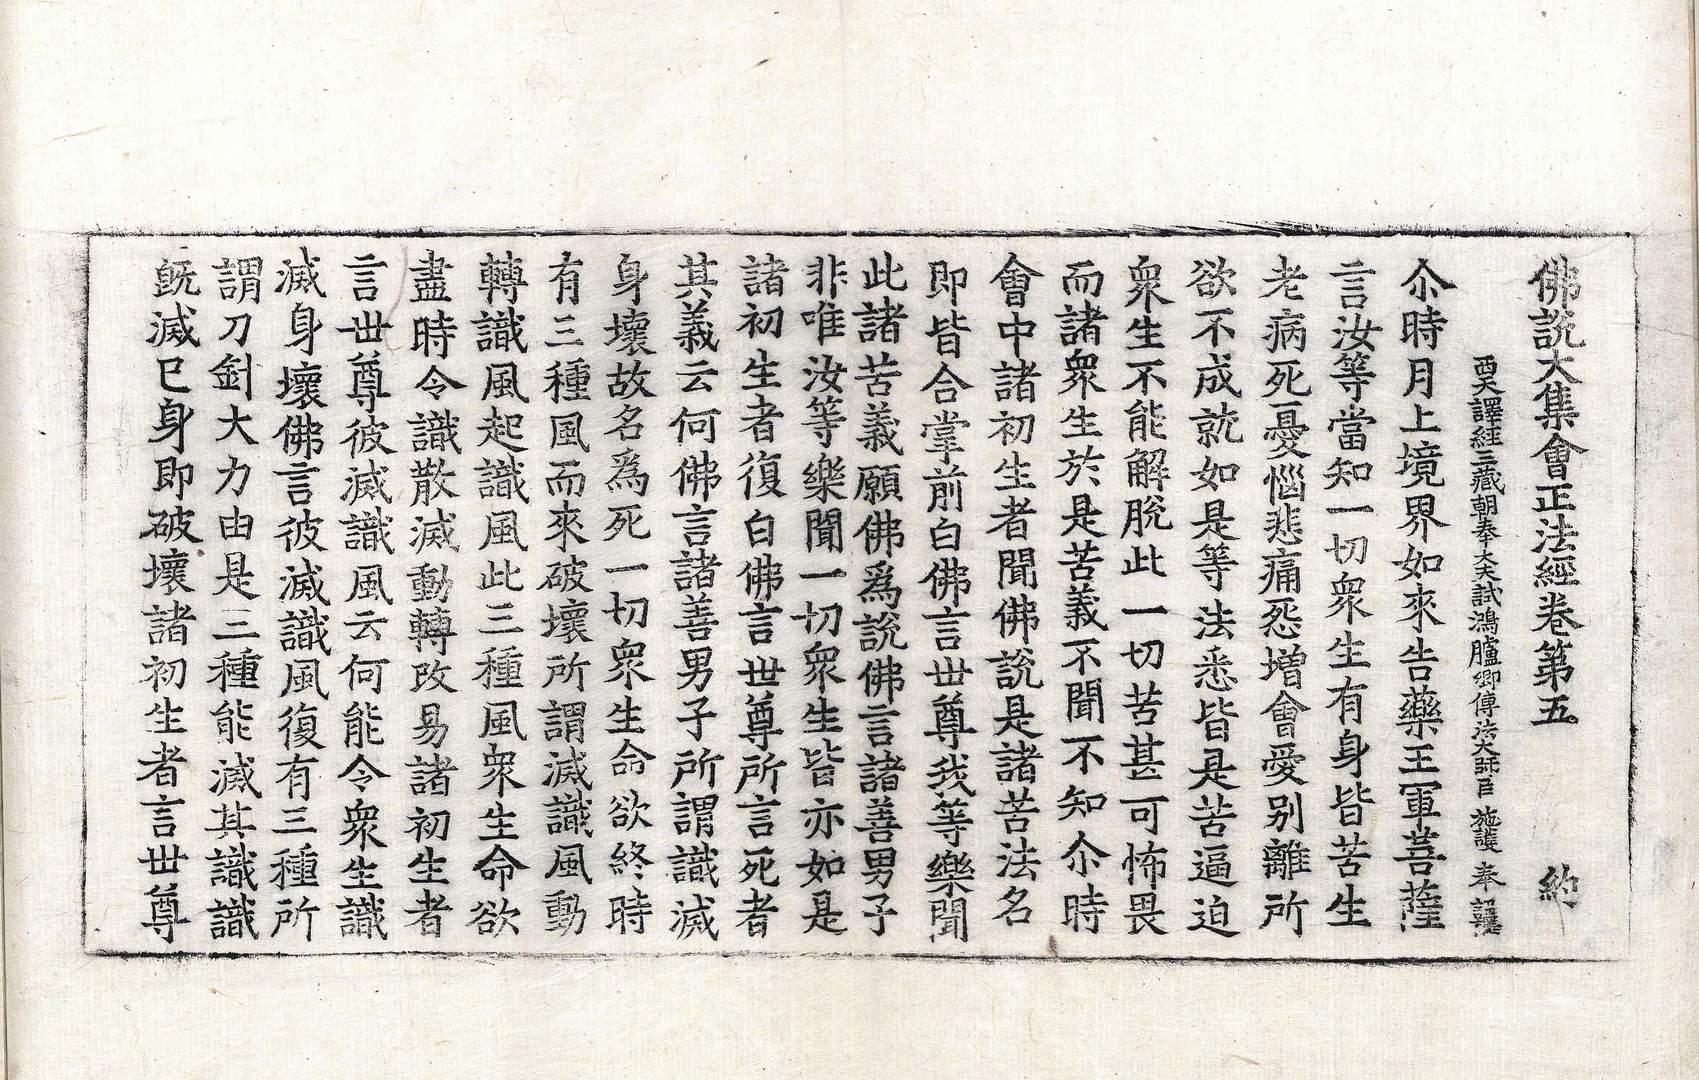 佛說大集會正法經卷第五 約
西天譯經三藏朝奉大夫試鴻臚卿傳法大師臣 施護 奉 詔譯
尒時月上境界如來告藥王軍菩薩
言汝等當知一切衆生有身皆苦生
老病死憂惱悲痛怨增會愛別離所
欲不成就如是等法悉皆是苦逼迫
衆生不能解脫此一切苦甚可怖畏
而諸衆生於是苦義不聞不知尒時
會中諸初生者聞佛說是諸苦法名
即皆合掌前白佛言世尊我等樂聞
此諸苦義願佛爲說佛言諸善男子
非唯汝等樂聞一切衆生皆亦如是
諸初生者復白佛言世尊所言死者
其義云何佛言諸善男子所謂識滅
身壞故名爲死一切衆生命欲終時
有三種風而來破壞所謂滅識風動
轉識風起識風此三種風衆生命欲
盡時令識散滅動轉改易諸初生者
言世尊彼滅識風云何能令衆生識
滅身壞佛言彼滅識風復有三種所
謂刀針大力由是三種能滅其識識
旣滅已身即破壞諸初生者言世尊